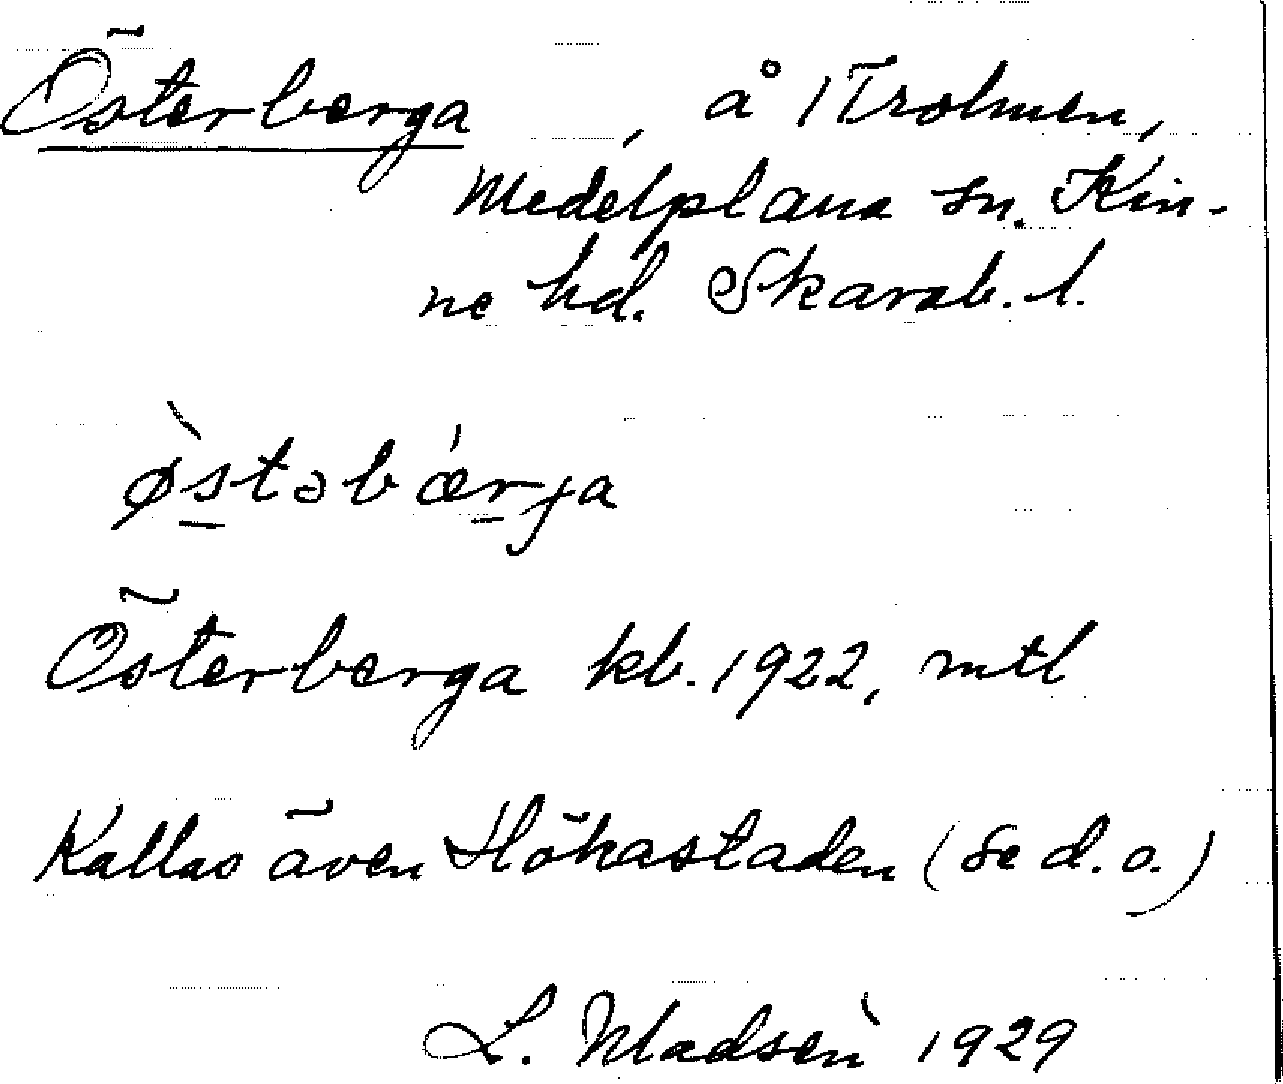 Österberga, å 1 Trolmen,
Medelplana sn. Kin-
ne hd. Skarab. l.
ø̀stəbǽrja
Österberga kb. 1922, mtl
Kallas även Hökastaden (se d. o.)
L. Madsén 1929